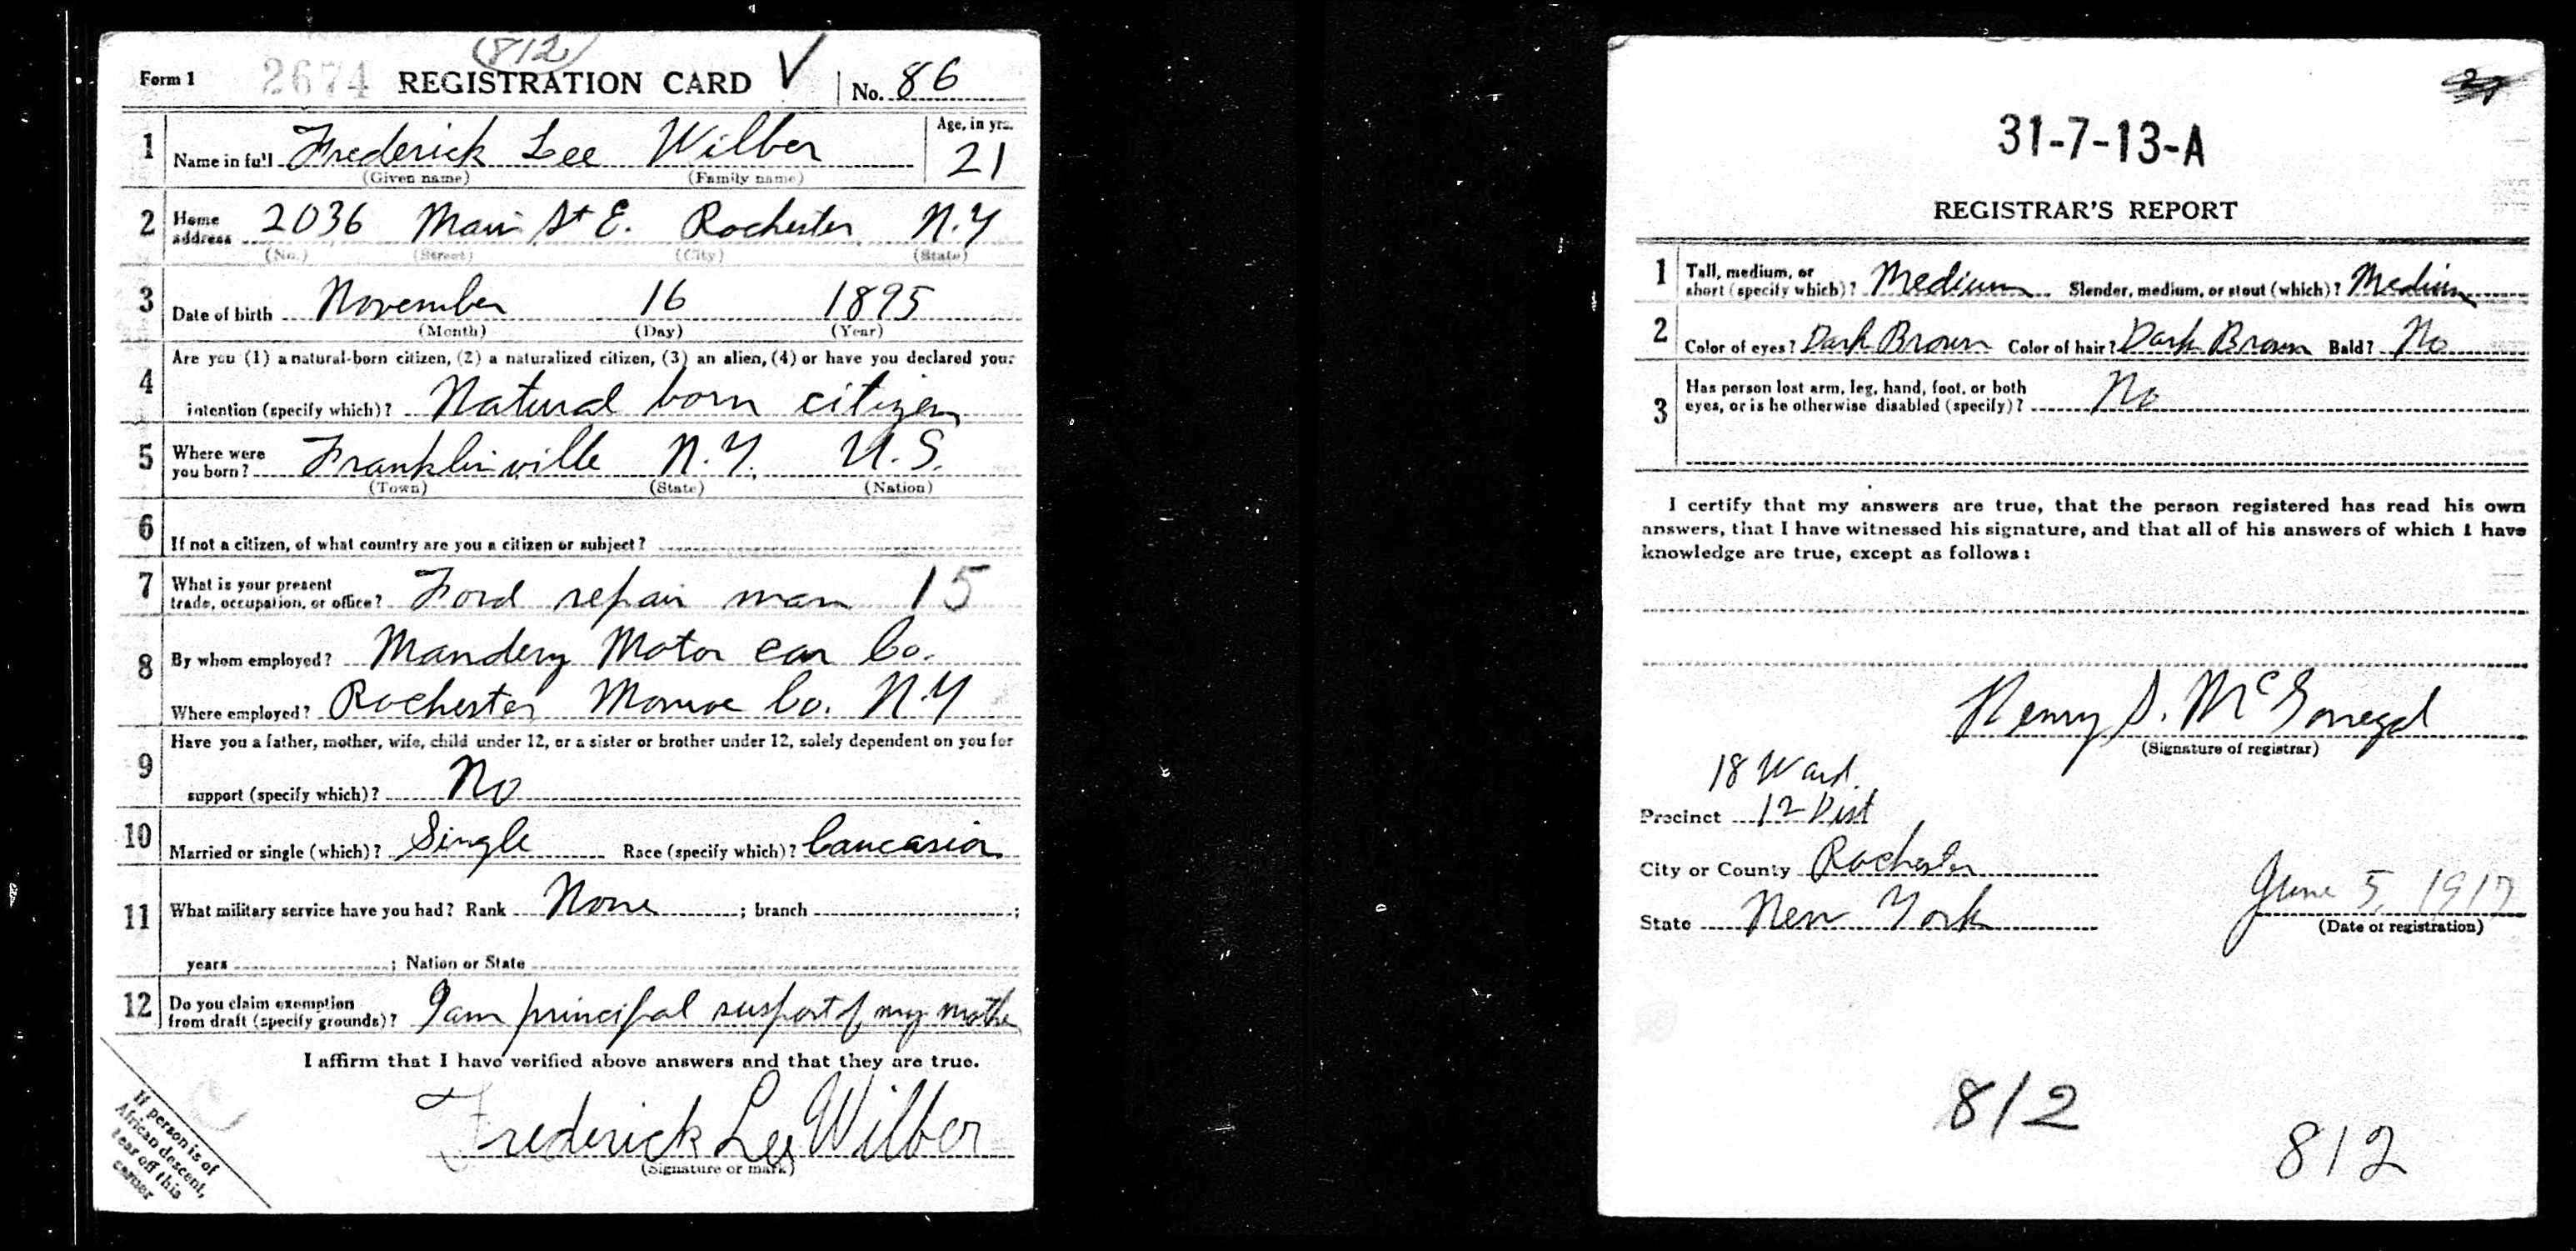 (812)
Form 1 2674 REGISTRATION CARD ✓ No. 86
1 Name in full Frederick Lee Wilber Age, in yrs. 21
(Given name) (Family name)
2 Home address 2036 Main St E. Rochester N.Y
(No.) (Street) (City) (State)
3 Date of birth November 16 1895
(Month) (Day) (Year)
4 Are you (1) a natural-born citizen, (2) a naturalized citizen, (3) an alien, (4) or have you declared your
intention (specify which)? Natural born citizen
5 Where were you born? Franklinville N.Y. U.S.
(Town) (State) (Nation)
6 If not a citizen, of what country are you a citizen or subject?
7 What is your present trade, occupation, or office? Ford repair man 15
8 By whom employed? Mandery Motor car Co.
Where employed? Rochester Monroe Co. N.Y
9 Have you a father, mother, wife, child under 12, or a sister or brother under 12, solely dependent on you for
support (specify which)? No
10 Married or single (which)? Single Race (specify which)? Caucasian
11 What military service have you had? Rank None ; branch ;
years ; Nation or State
12 Do you claim exemption from draft (specify grounds)? I am principal support of my mother
I affirm that I have verified above answers and that they are true.
Frederick Lee Wilber
(Signature or mark)
If person is of
African descent,
tear off this
corner
31-7-13-A
REGISTRAR'S REPORT
1 Tall, medium, or short (specify which)? Medium Slender, medium, or stout (which)? Medium
2 Color of eyes? Dark Brown Color of hair? Dark Brown Bald? No
3 Has person lost arm, leg, hand, foot, or both eyes, or is he otherwise disabled (specify)? No
I certify that my answers are true, that the person registered has read his own
answers, that I have witnessed his signature, and that all of his answers of which I have
knowledge are true, except as follows:
Henry S. McGonegal
(Signature of registrar)
18 Ward.
Precinct 12 Dist
City or County Rochester
State New York
June 5, 1917
(Date of registration)
812
812